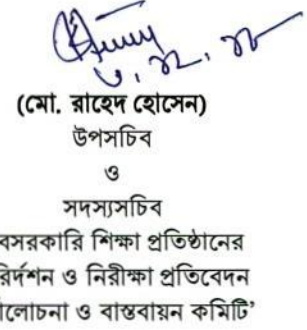 ৩.১২.১৮
(মো. রাহেদ হোসেন)
উপসচিব
ও
সদস্যসচিব
বসরকারি শিক্ষা প্রতিষ্ঠানের
রিদর্শন ও নিরীক্ষা প্রতিবেদন
লোচনা ও বাস্তবায়ন কমিটি’